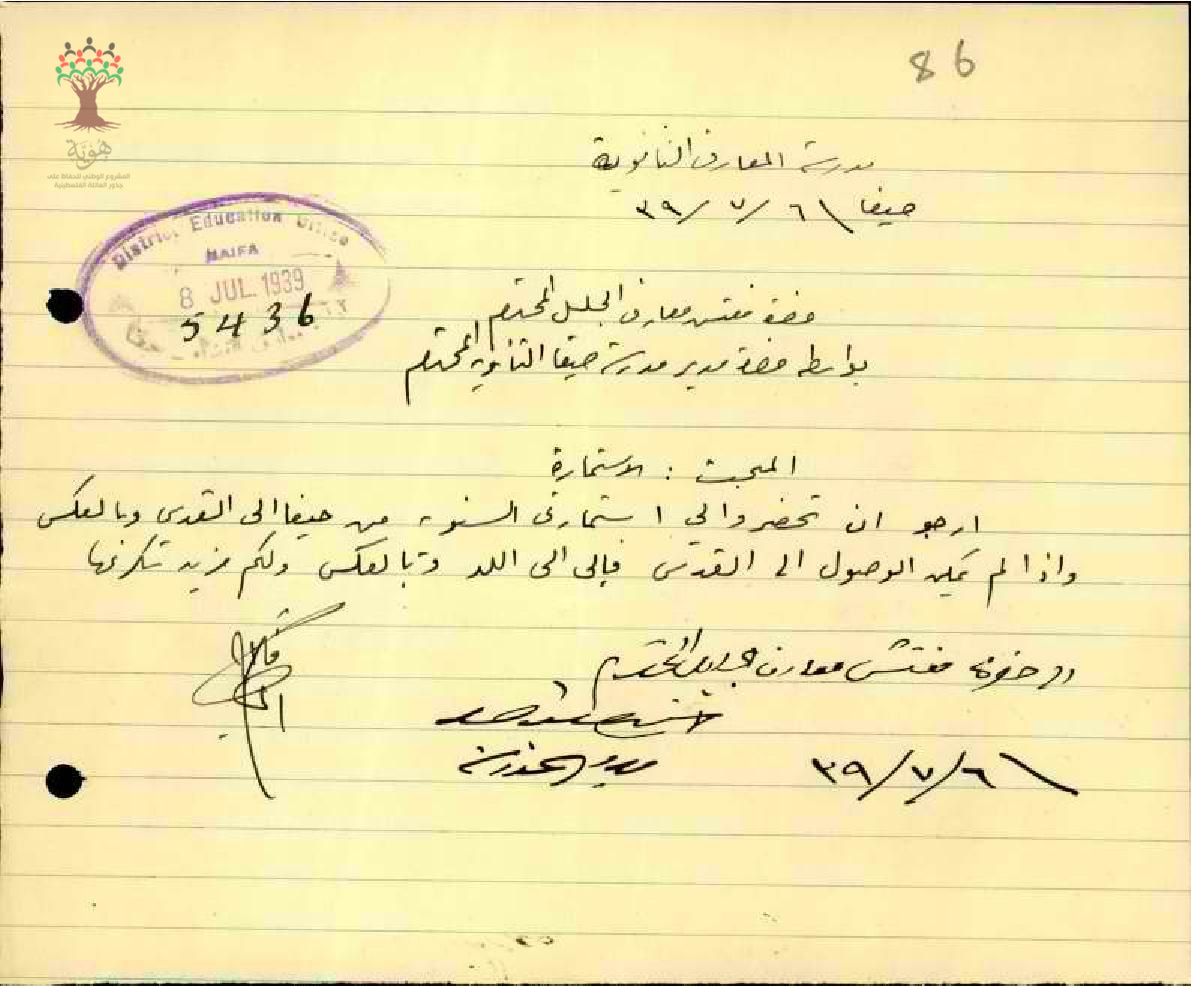 86
هوية
المشروع الوطني للحفاظ على
جذور العائلة الفلسطينية
مدرسة المعارف الثانوية
حيفا ٦ / ٧ / ٣٩
District Education Office
HAIFA
8 JUL 1939
5436
حضرة مفتش معارف الجليل المحترم
بواسطة حضرة مدير مدرسة حيفا الثانوية المحترم
المبحث : الاستمارة
ارجو ان تحضروا لي استمارتي السنوية من حيفا الى القدس وبالعكس
واذا لم يمكن الوصول الى القدس فإلى اللد وبالعكس ولكم مزيد شكري
حضرة مفتش معارف الجليل المحترم
مدير المدرسة
٦/٧/٣٩